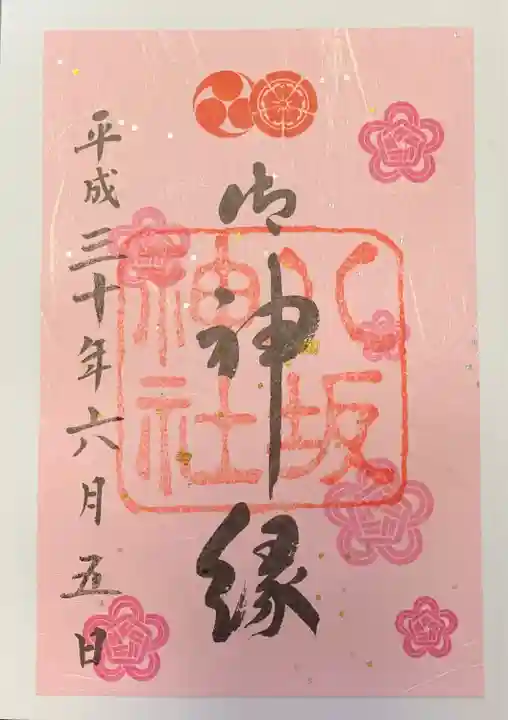 御神縁
八坂
神社
平成三十年六月五日